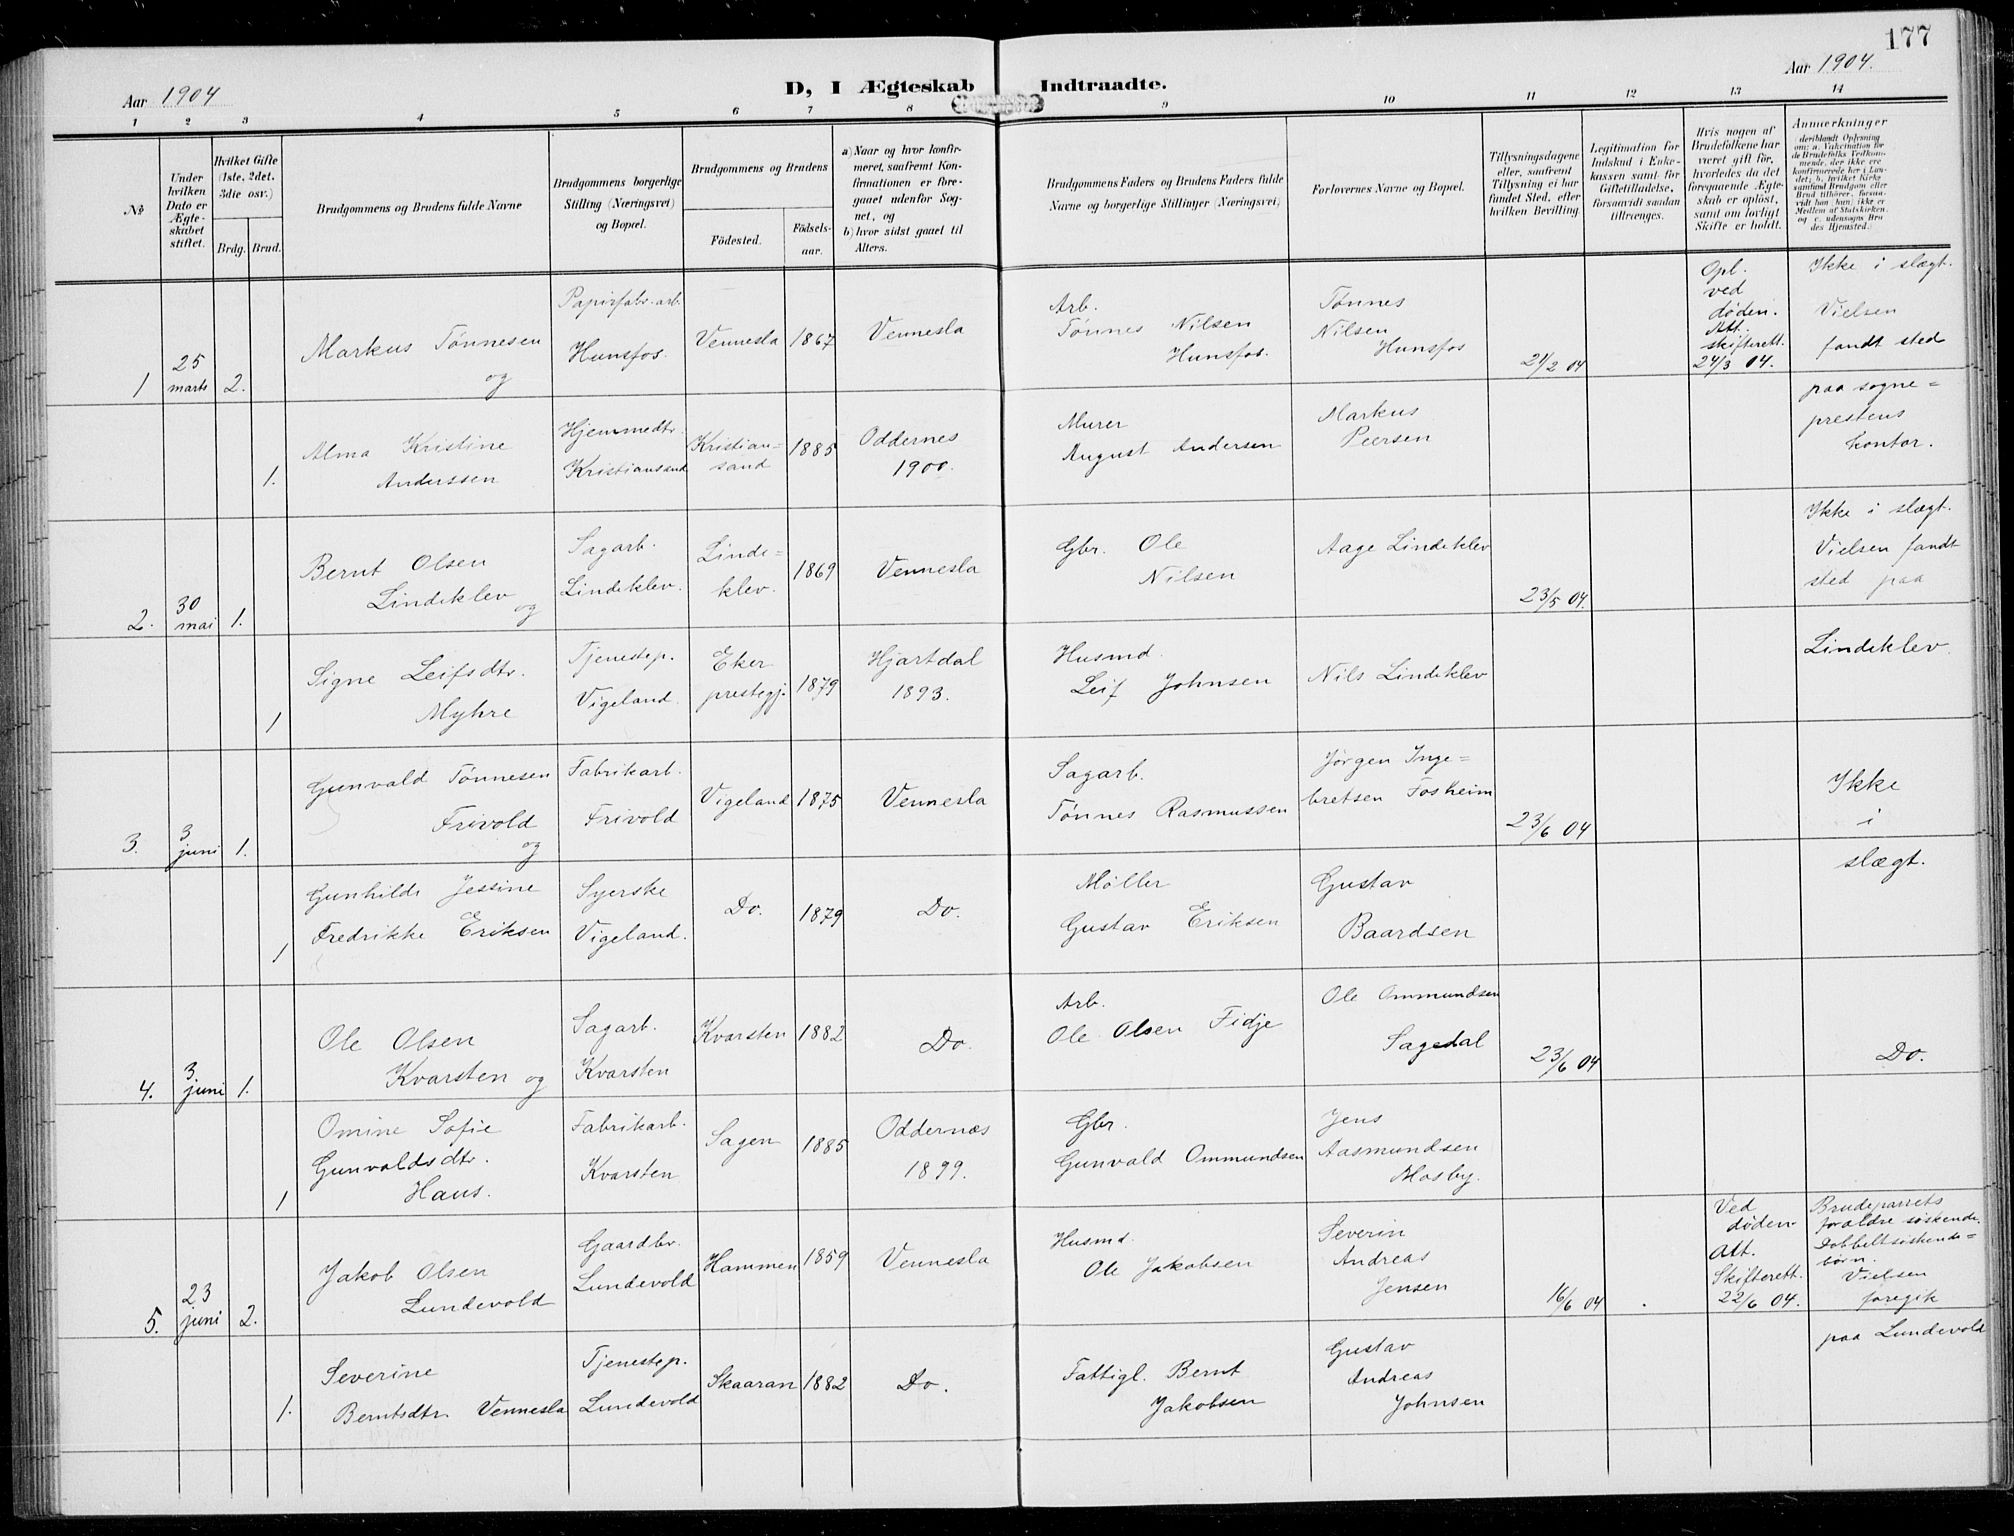 177
Aar 1904
D, I Ægteskab Indtraadte.
Aar 1904.
1 2 3 4 5 6 7 8 9 10 11 12 13 14
№
Under hvilken Dato er Ægteskabet stiftet.
Hvilket Gifte (1ste, 2det, 3die osv.)
Brdg. Brud.
Brudgommens og Brudens fulde Navne
Brudgommens borgerlige Stilling (Næringsvei) og Bopæl.
Brudgommens og Brudens
Fødested.
Fødselsaar.
a) Naar og hvor konfirmeret, saafremt Konfirmationen er foregaaet udenfor Sognet, og
b) hvor sidst gaaet til Alters.
Brudgommens Faders og Brudens Faders fulde Navne og borgerlige Stillinger (Næringsvei)
Forlovernes Navne og Bopæl.
Tillysningsdagene eller, saafremt Tillysning ei har fundet Sted, efter hvilken Bevilling.
Legitimation for Indskud i Enkekassen samt for Giftetilladelse, forsaavidt saadan tiltrænges.
Hvis nogen af Brudefolkene har været gift før, hvorledes da det foregaaende Ægteskab er opløst, samt om lovligt Skifte er holdt.
Anmerkninger
(deriblandt Oplysning om: a. Vaksination for de Brudefolks Vedkommende, der ikke ere konfirmerede her i Landet; b. hvilket Kirkesamfund Brudgom eller Brud tilhører, forsaavidt han (hun) ikke er Medlem af Statskirken, og c. udensogns Brudes Hjemsted.
1
25 marts
2.
Markus Tønnesen
og
Papirfabr. arb.
Hunsfos.
Vennesla
1867
Vennesla
Arb.
Tønnes Nilsen
Hunsfos.
Tønnes
Nilsen
Hunsfos
21/2 04
Opl.
ved
døden.
Att.
skifterett.
24/3 04.
Ikke i slægt.
Vielsen
fandt sted
paa sogne=
prestens
kontor.
1.
Alma Kristine
Anderssen
Hjemmedtr.
Kristiansand
Kristian=
sand
1885
Oddernes
1900.
Murer
August Andersen
Markus
Peersen
2.
30 mai
1.
Bernt Olsen
Lindeklev
og
Sagarb.
Lindeklev.
Linde=
klev.
1869
Vennesla
Gbr. Ole
Nilsen
Aage Lindeklev
23/5 04.
Ikke i slægt.
Vielsen fandt
sted paa
Lindeklev
1
Signe Leifsdtr.
Myhre
Tjenestep.
Vigeland.
Eker
prestegj.
1879
Hjartdal
1893.
Husmd.
Leif Johnsen
Nils Lindeklev
3.
3 juni
1.
Gunvald Tønnesen
Frivold
og
Fabrikarb.
Frivold
Vigeland
1875
Vennesla
Sagarb.
Tønnes Rasmussen
Jørgen Inge=
bretsen Fosheim
23/6 04
Ikke
i
slægt.
1
Gunhilde Jessine
Fredrikke Eriksen
Syerske
Vigeland.
Do.
1879
Do.
Møller
Gustav Eriksen
Gustav
Baardsen
4.
3 juni
1.
Ole Olsen
Kvarsten og
Sagarb.
Kvarsten
Kvarsten
1882
Do.
Arb.
Ole Olsen Fidje
Ole Ommundsen
Sagedal
23/6 04
Do.
1
Omine Sofie
Gunvaldsdtr.
Haus.
Fabrikarb.
Kvarsten
Sagen
1885
Oddernæs
1899.
Gbr.
Gunvald Ommundsen
Jens
Aasmundsen
Mosby.
5.
23 juni
2.
Jakob Olsen
Lundevold
Gaardbr.
Lundevold
Hammen
1859
Vennesla
Husmd.
Ole Jakobsen
Severin
Andreas
Jensen
16/6 04
Ved
døden
Att.
Skifterett.
22/6 04.
Brudeparrets
forældre søskende.
Dobbeltsøskende=
børn.
Vielsen
foregik
paa Lundevold
1.
Severine
Berntsdtr. Vennesla
Tjenestep.
Lundevold
Skaaran
1882
Do.
Fattigl. Bernt
Jakobsen
Gustav
Andreas
Johnsen